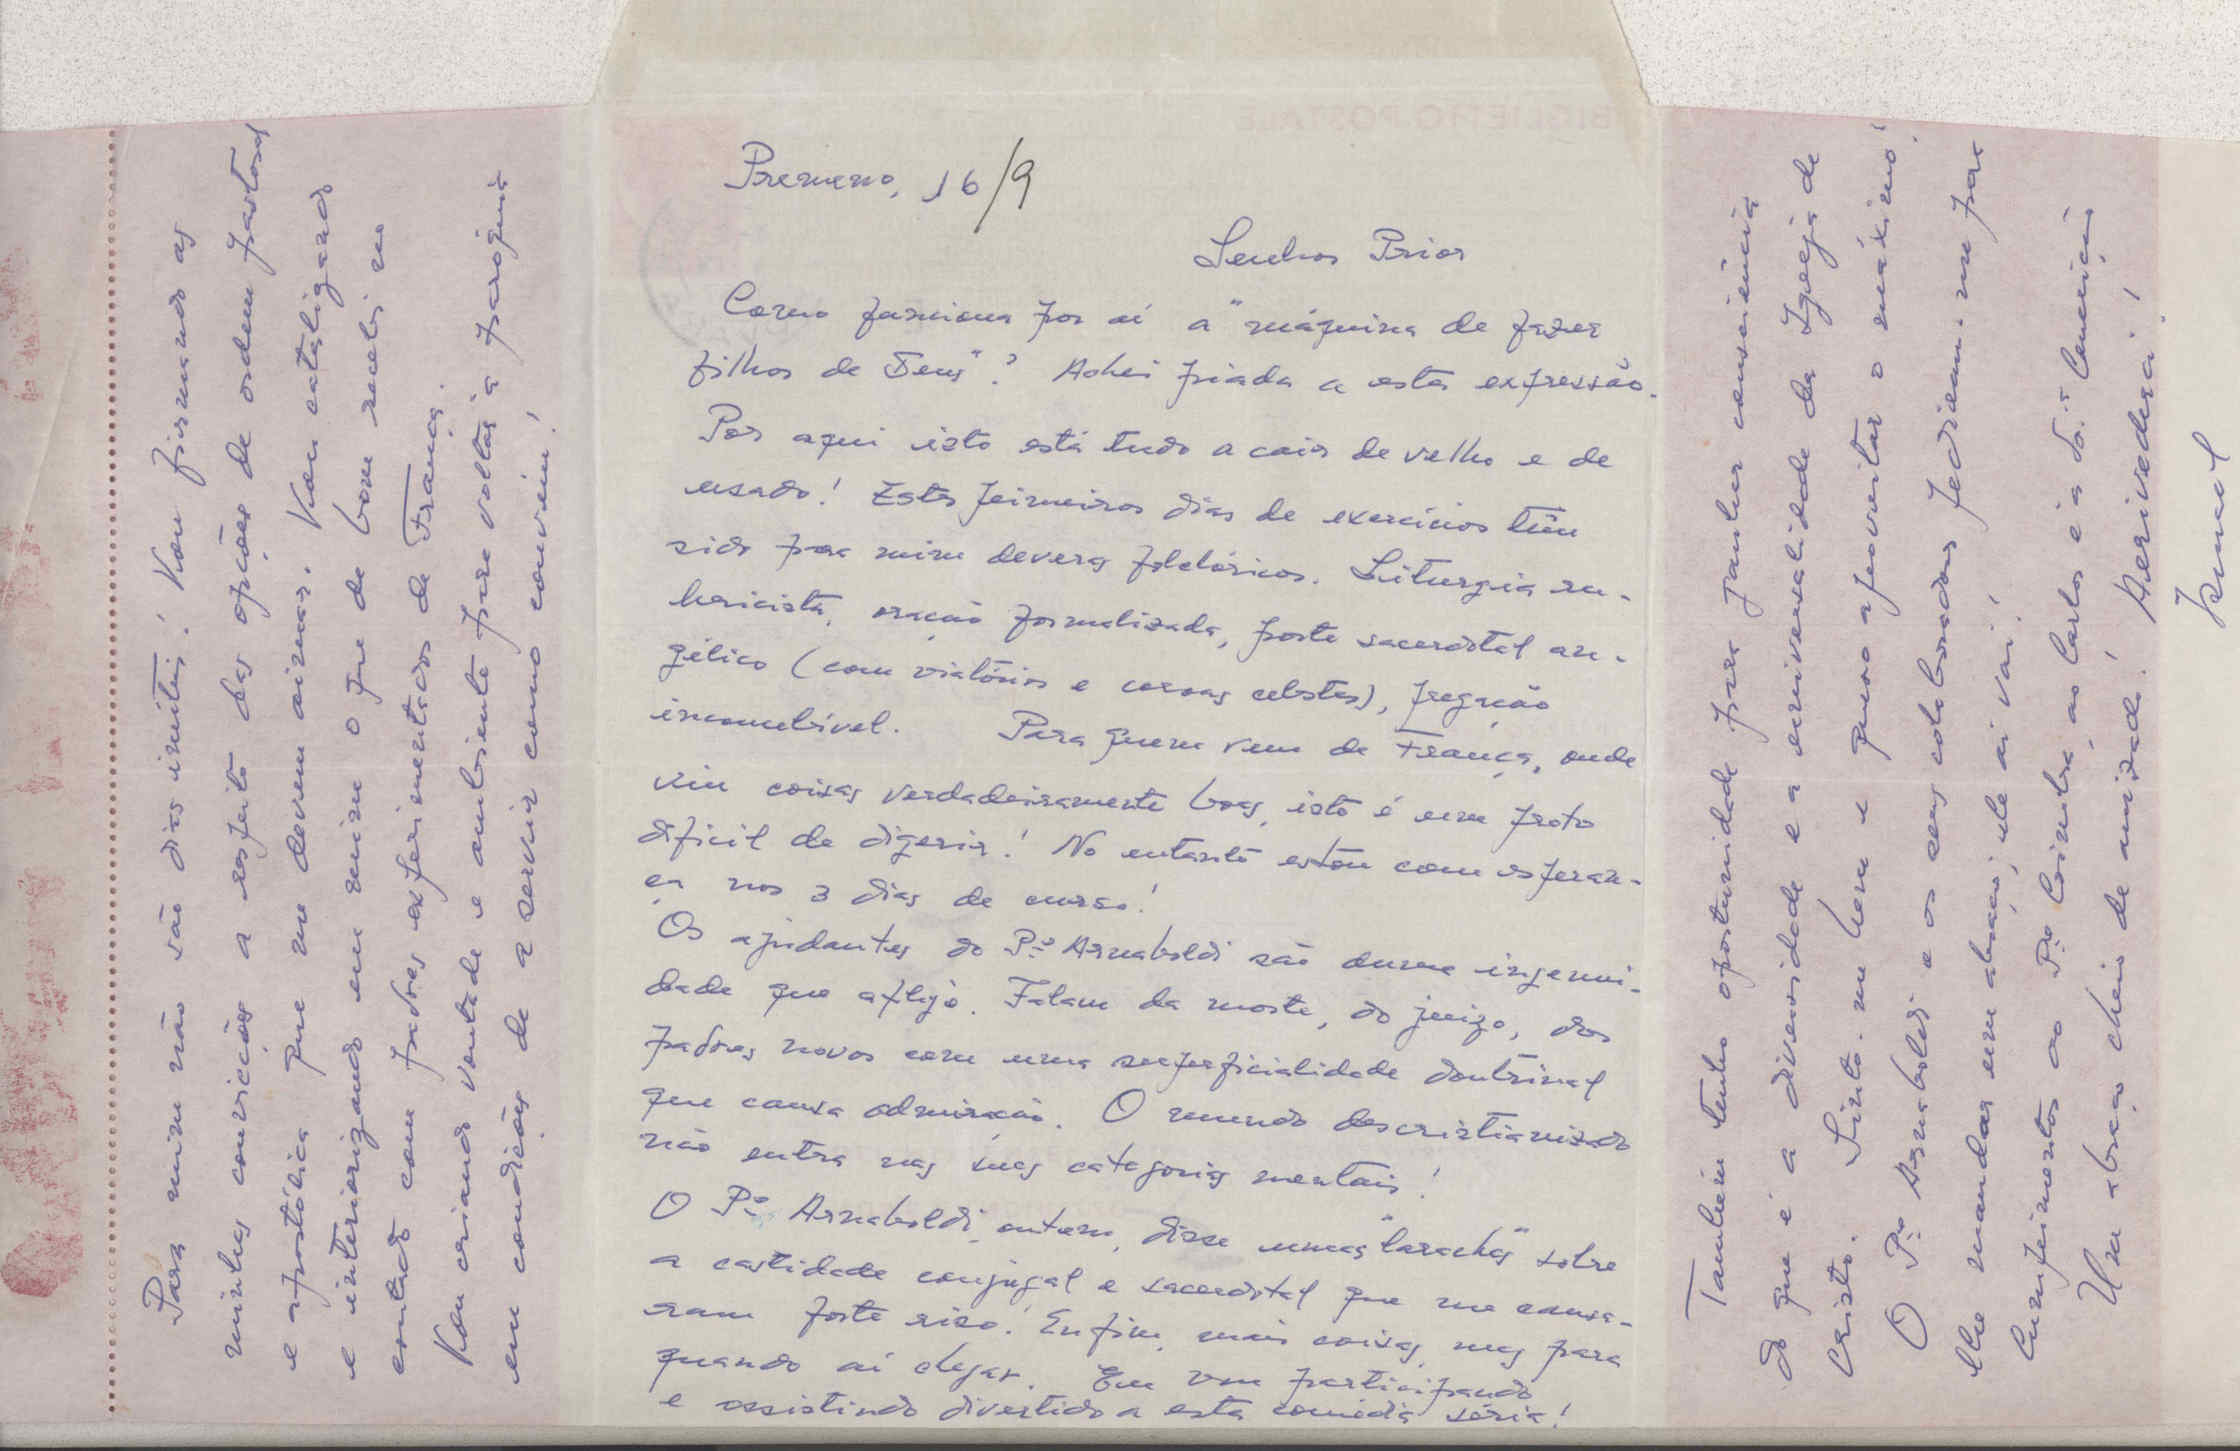 Premeno, 16/9
Senhor Prior
Como funciona por aí a "máquina de fazer
filhos de Deus"? Achei piada a esta expressão.
Por aqui isto está tudo a cair de velho e de
usado! Estes primeiros dias de exercícios têm
sido para mim deveras folclóricos. Liturgia ru-
bricista, oração formalizada, porte sacerdotal an-
gélico (com viatórios e coroas celestes), pregação
incomebível. Para quem vem de França, onde
viu coisas verdadeiramente boas, isto é um prato
dificil de digerir! No entanto estou com esperan-
ça nos 3 dias de curso!
Os ajudantes do Pe Arnaboldi são duma ingenui-
dade que aflije. Falam da morte, do juizo, dos
padres novos com uma superficialidade doutrinal
que causa admiração. O mundo descristianizado
não entra nas suas categorias mentais!
O Pe Arnaboldi, ontem, disse umas "larachas" sobre
a castidade conjugal e sacerdotal que me causa-
ram forte riso! Enfim, mais coisas, mas para
quando aí chegar. Eu vou participando
e assistindo divertido a esta comédia séria!
Para mim não são dias inúteis! Vou firmando as
minhas convicções a respeito das opções de ordem pastoral
e apostólica que me devem animar. Vou catalizando
e interiorizando em mim o que de bom recebi no
contacto com padres experimentados de França.
Vou criando vontade e ambiente para voltar à paróquia
em condições de a servir como convém!
Também tenho oportunidade para ganhar consciência
do que é a diversidade e a universalidade da Igreja de
Cristo. Sinto-me bem e quero aproveitar o máximo!
O Pe Arnaboldi e os seus colaboradores pediram-me para
lhe mandar um abraço; ele aí vai!
Cumprimentos ao Pe Coimbra, ao Carlos e à Sra Conceição
Um abraço cheio de amizade! Arivederci!